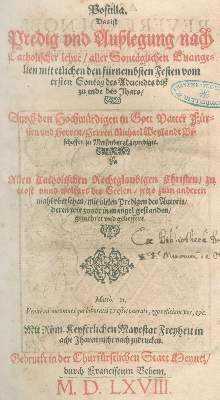 Postilla.
Das ist
Predig vnd Außlegung nach
Catholischer lehre / aller Sontäglichen Euange-
lien mit etlichen den fürnembsten Festen vom
ersten Sontag des Aduendts biß
zu ende des Jhars /
Durch den Hochwirdigen in Gott Vatter Für-
sten vnd Herren / Herren Michael
Bischoffen zu Merseburg geprediget.
Allen Catholischen Rechtglaubigen Christen / zu
trost vnnd wolfart der Seelen / jetzo zum anderen
mal mit vielen Predigen des Autoris /
deren wir zuuor in mangel gestanden /
gemehret vnd gebessert.
Ex Bibliotheca
Math. 11.
Mit Röm. Keyserlichen Mayestat Freyheit in
acht Jharen nicht nach zudrucken.
Gedruckt in der Churfürstlichen Statt Meyntz /
durch Franciscum Behem.
M. D. LXVIII.